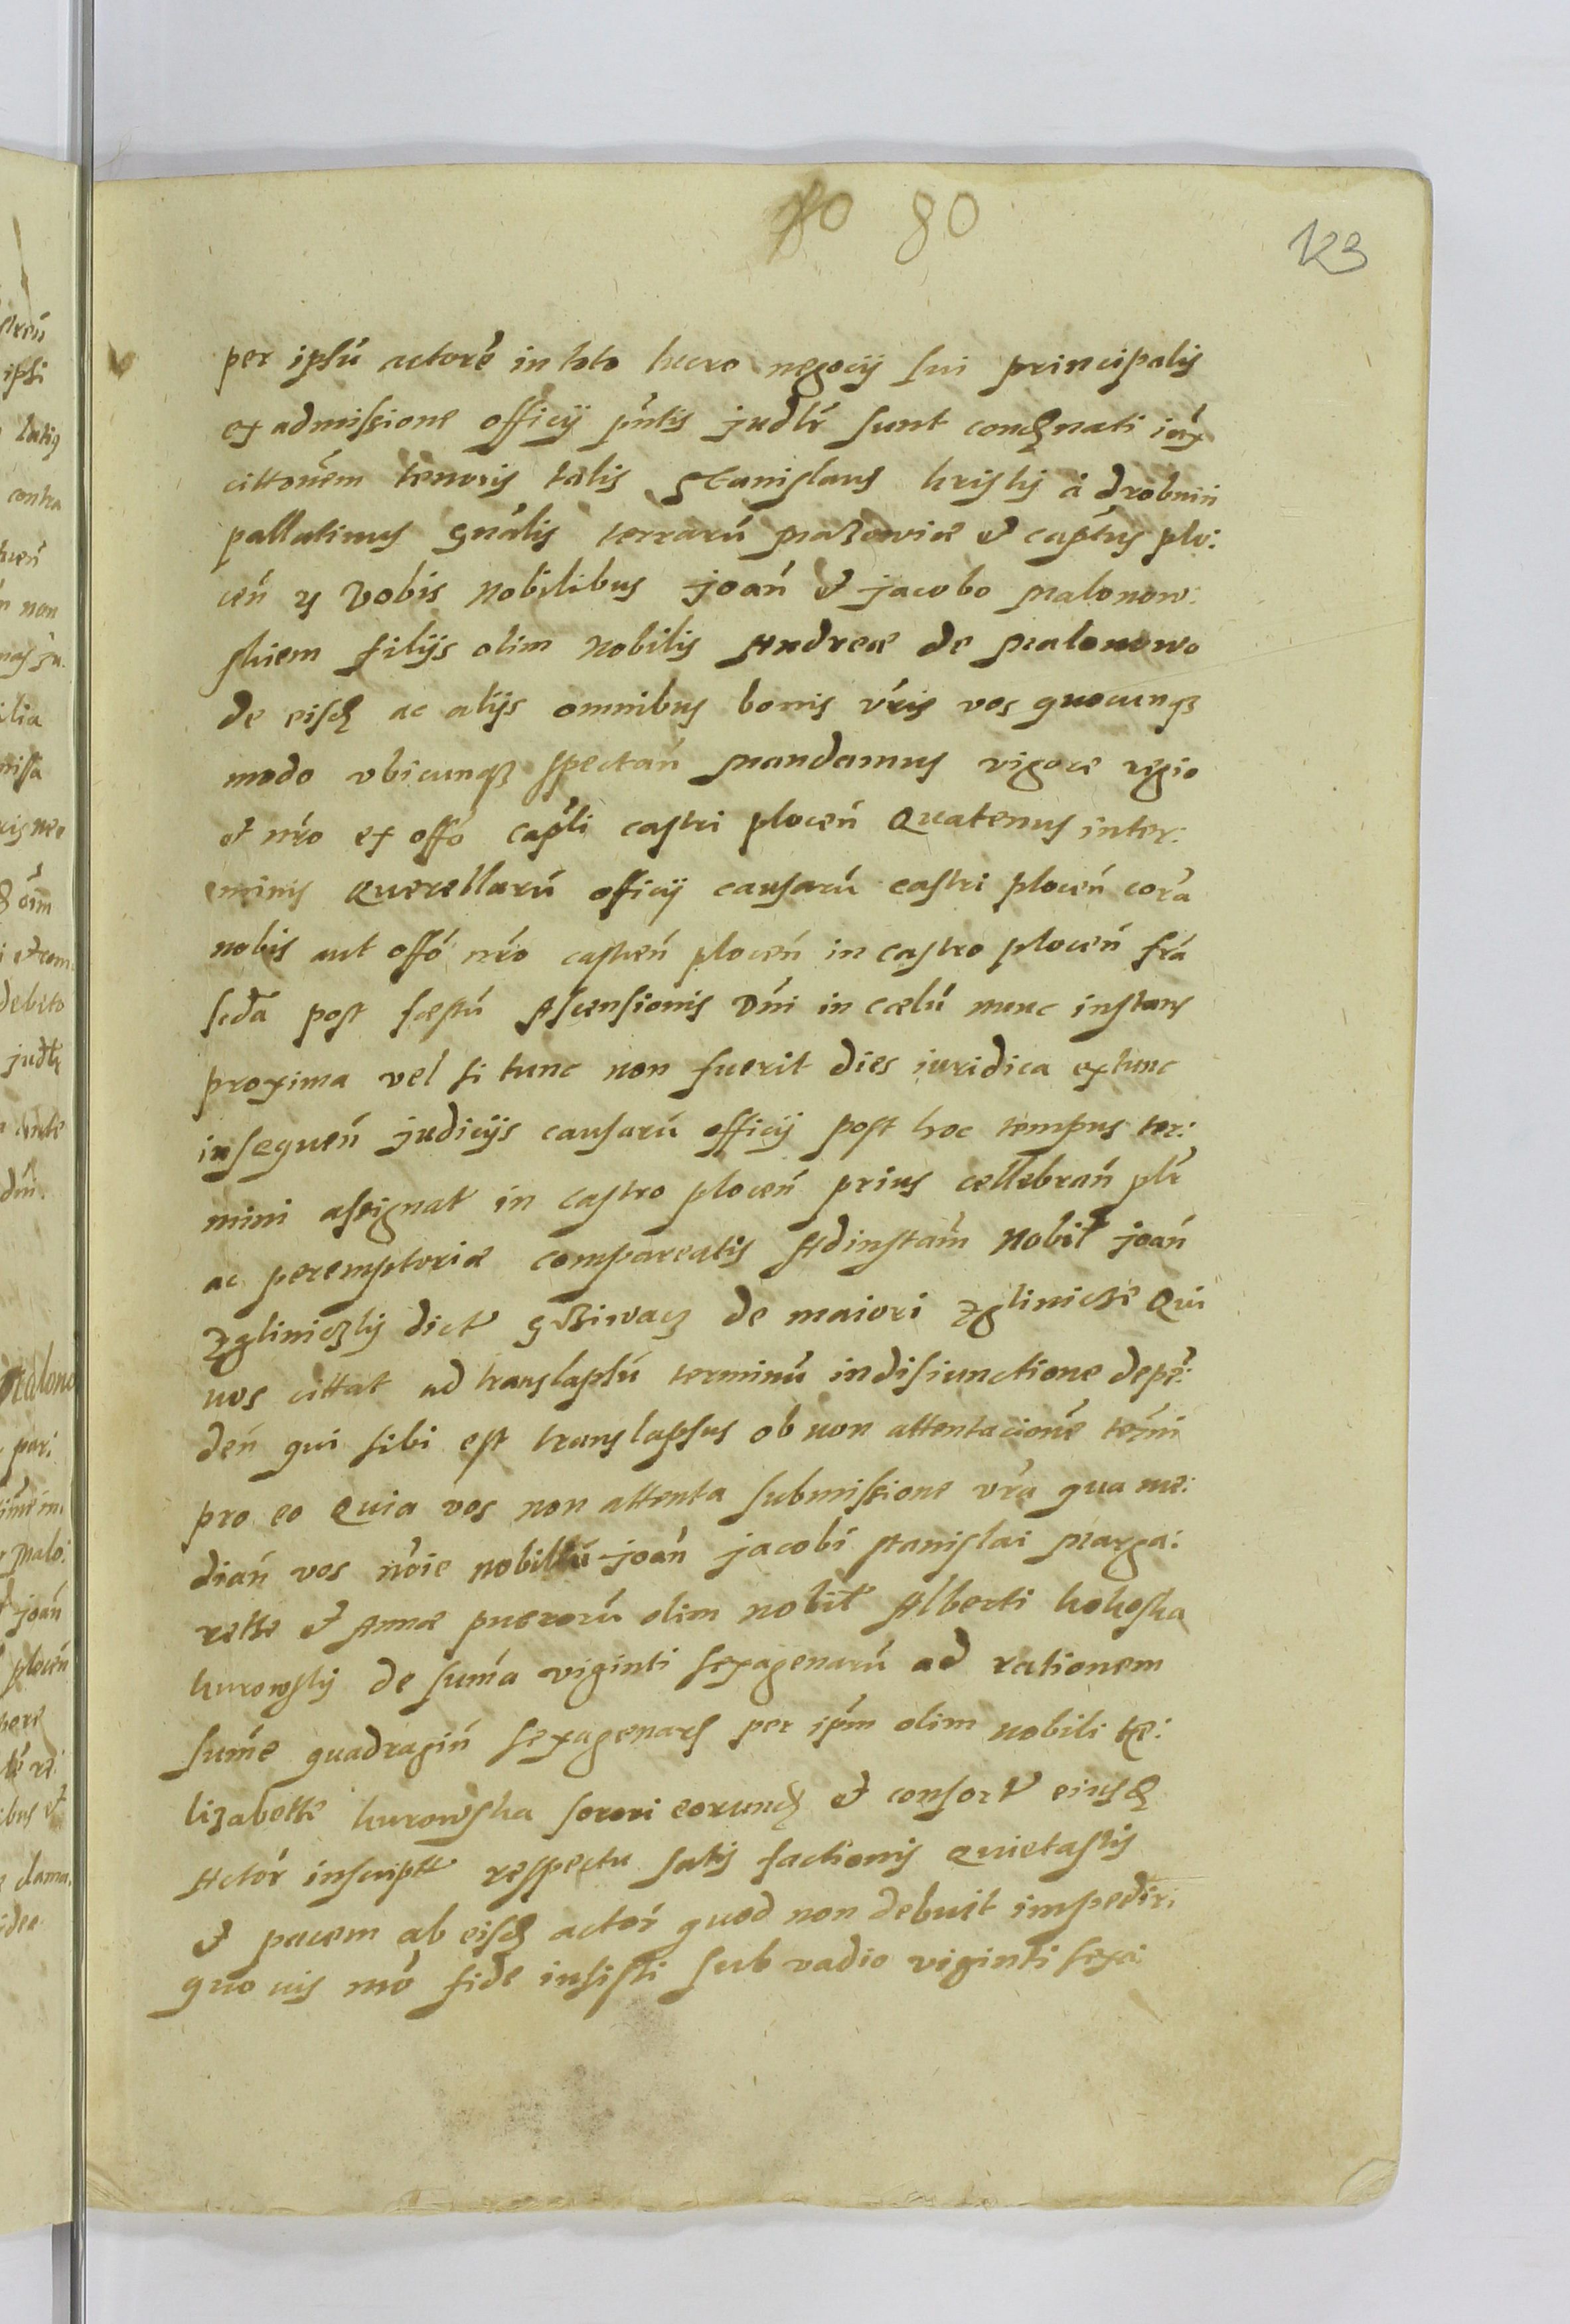 80 80
123
per ipsū actorē in toto lucro negocij sui principalis
ex admissione officij pn̄tis judlr̄ sunt condēnati iux̄
cittonēm tenoris talis Stanislaus kriski á drobnin
pallatinus gnālis terrarū Mazoviæ et captūs plo:
ceń Vobis Nobilibus joań et jacobo Malonow:
skiem filijs olim Nobilis Andreæ de Malonowo
de eisd ac alijs omnibus bonis vr̄is vos quocunqꝫ
modo vbicunqꝫ spectań Mandamus vigore regio
et nr̄o ex offō capli castri ploceń Quatenus inter:
minis Querellarū officij causarū castri ploceń corā
nobis aut offō nr̄o castreń ploceń in castro ploceń fr̄a
scdā post festū Ascensionis Dn̄i in cœlū nunc instans
proxima vel si tunc non fuerit dies iuridica extunc
insequeń judicijs causarū officij post hoc tempus ter:
mini assignat in castro ploceń prius cellebrań plr̄
ac peremptoriæ compareatis Adinstam̄ Nobil joań
Zgliniczky dict gVziwacz de maiori Zglinicze Qui
vos cittat ad translapsū terminū indisiunctione depē:
deń qui sibi est translapsus ob non attentacionē term̄i
pro eo Quia vos non attenta submissione vr̄a qua me:
diań vos nōie nobiliū joań jacobi stanislai Marga:
rethe et Annæ puerorū olim nobil Alberti kokoska
kurowsky de sum̄a viginti sexagenarū ad rationem
sum̄e quadragiń sexagenar per ipm̄ olim nobili he:
lizabethe kurowska sorori eorund et consort eiusd
Actor̄ inscript respectu satis factionis Quietastis
et pacem ab eisd actor̄ quod non debuit impediri
quo vis mō fide insisti sub vadio viginti sexa: